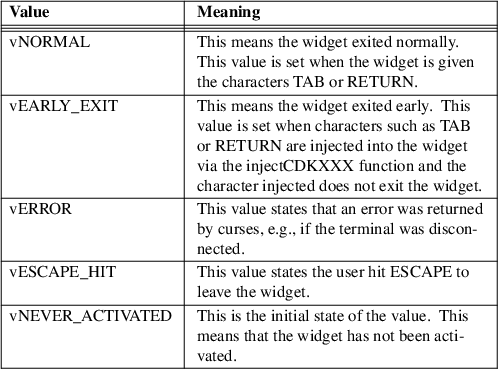 Value Meaning
vNORMAL This means the widget exited normally.
This value is set when the widget is given
the characters TAB or RETURN.
vEARLY_EXIT This means the widget exited early. This
value is set when characters such as TAB
or RETURN are injected into the widget
via the injectCDKXXX function and the
character injected does not exit the widget.
vERROR This value states that an error was returned
by curses, e.g., if the terminal was discon-
nected.
vESCAPE_HIT This value states the user hit ESCAPE to
leave the widget.
vNEVER_ACTIVATED This is the initial state of the value. This
means that the widget has not been acti-
vated.